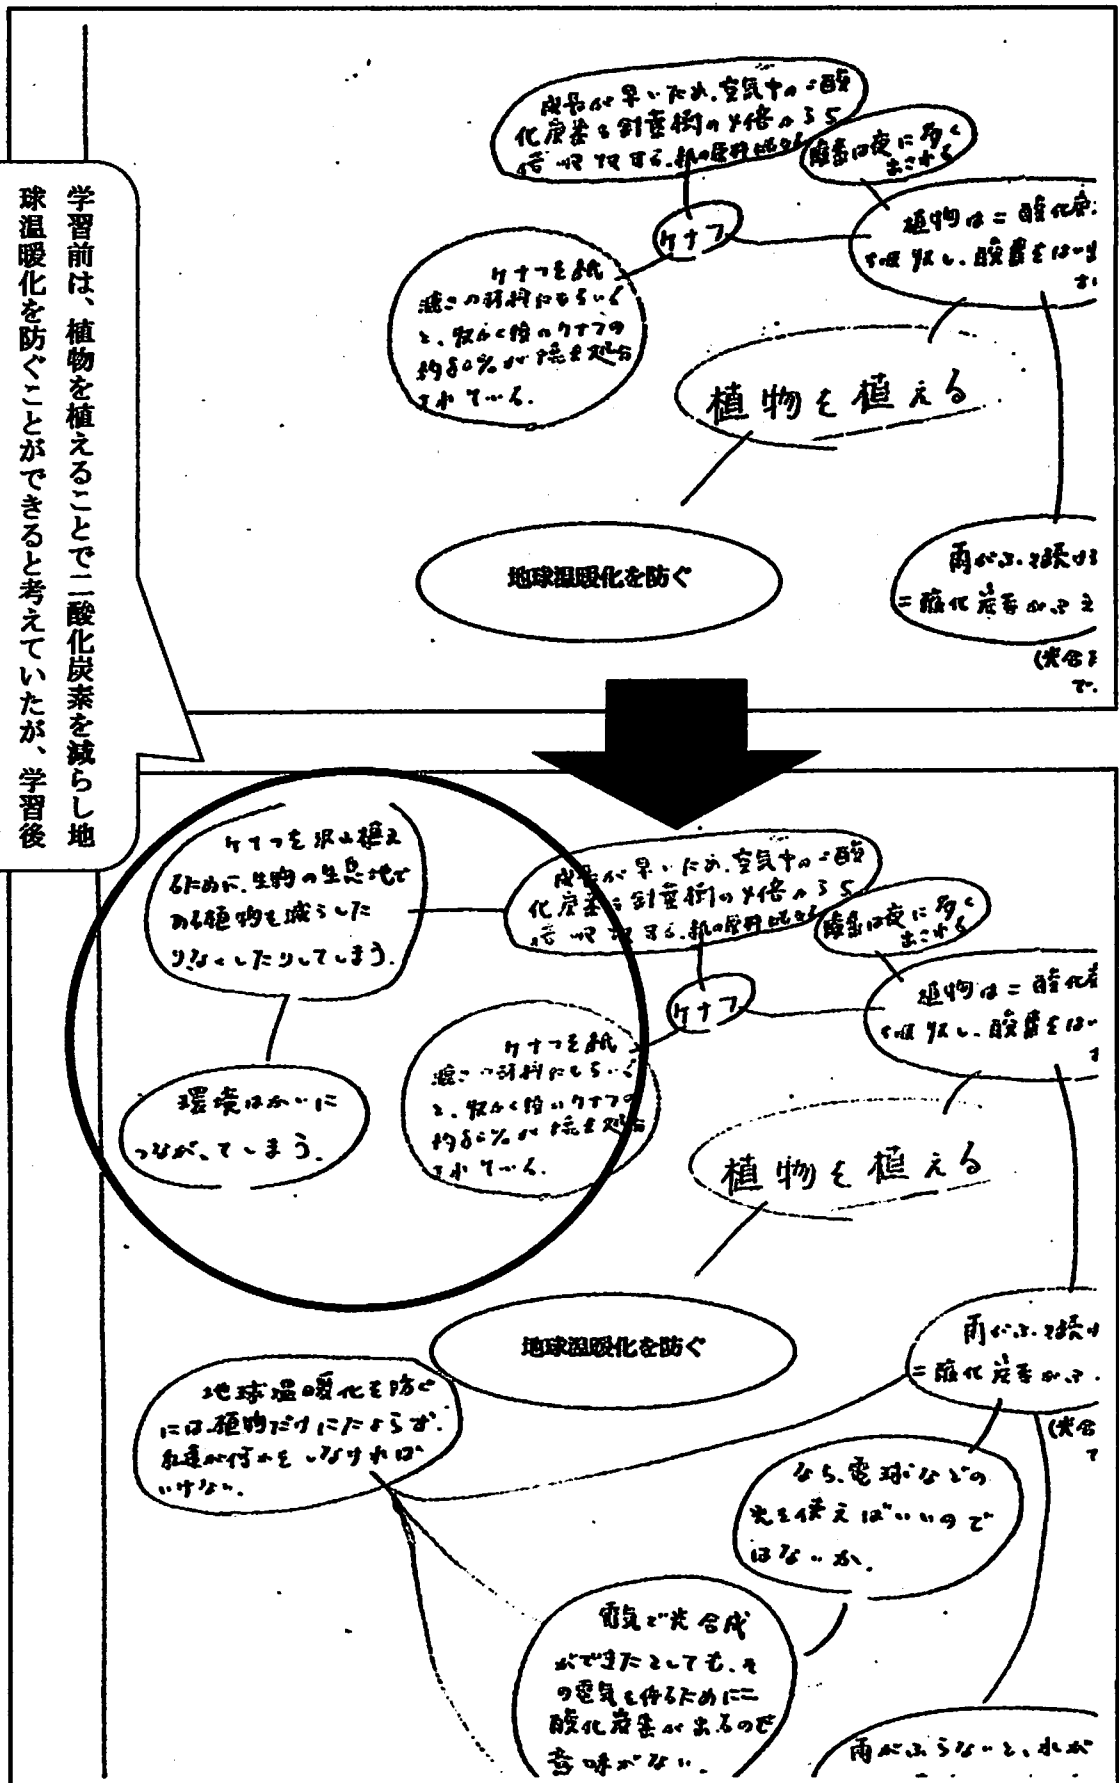 学習前は、植物を植えることで二酸化炭素を減らし地
球温暖化を防ぐことができると考えていたが、学習後
成長が早いため、空気中の二酸
化炭素を針葉樹の4倍から5
倍吸収する。紙の原料になる
酸素は夜に多く
出される
植物は二酸化炭
を吸収し、酸素をはい
ケナフ
ケナフを紙
すての材料にもちいる
と、収かく後のケナフの
約80%が焼き処分
されている。
植物を植える
地球温暖化を防ぐ
雨がふって続ける
二酸化炭素がふえ
(光合
で、
ケナフを沢山植え
るために、生物の生息地で
ある植物を減らした
りなくしたりしてしまう。
成長が早いため、空気中の二酸
化炭素を針葉樹の4倍から5
倍吸収する。紙の原料になる
酸素は夜に多く
出される
植物は二酸化炭
を吸収し、酸素をは
ケナフ
ケナフを紙
の材料にもちいる
と、収かく後のケナフの
約80%が焼き処分
されている。
環境はかいに
つながってしまう。
植物を植える
地球温暖化を防ぐ
雨がふって続け
二酸化炭素がふ
(光合
で
地球温暖化を防ぐ
には、植物だけにたよらず、
私達が何かをしなければ
いけない。
なら、電球などの
光を使えばいいので
はないか。
電気で光合成
ができたとしても、そ
の電気を作るために二
酸化炭素が出るので
意味がない。
雨がふらないと、水が